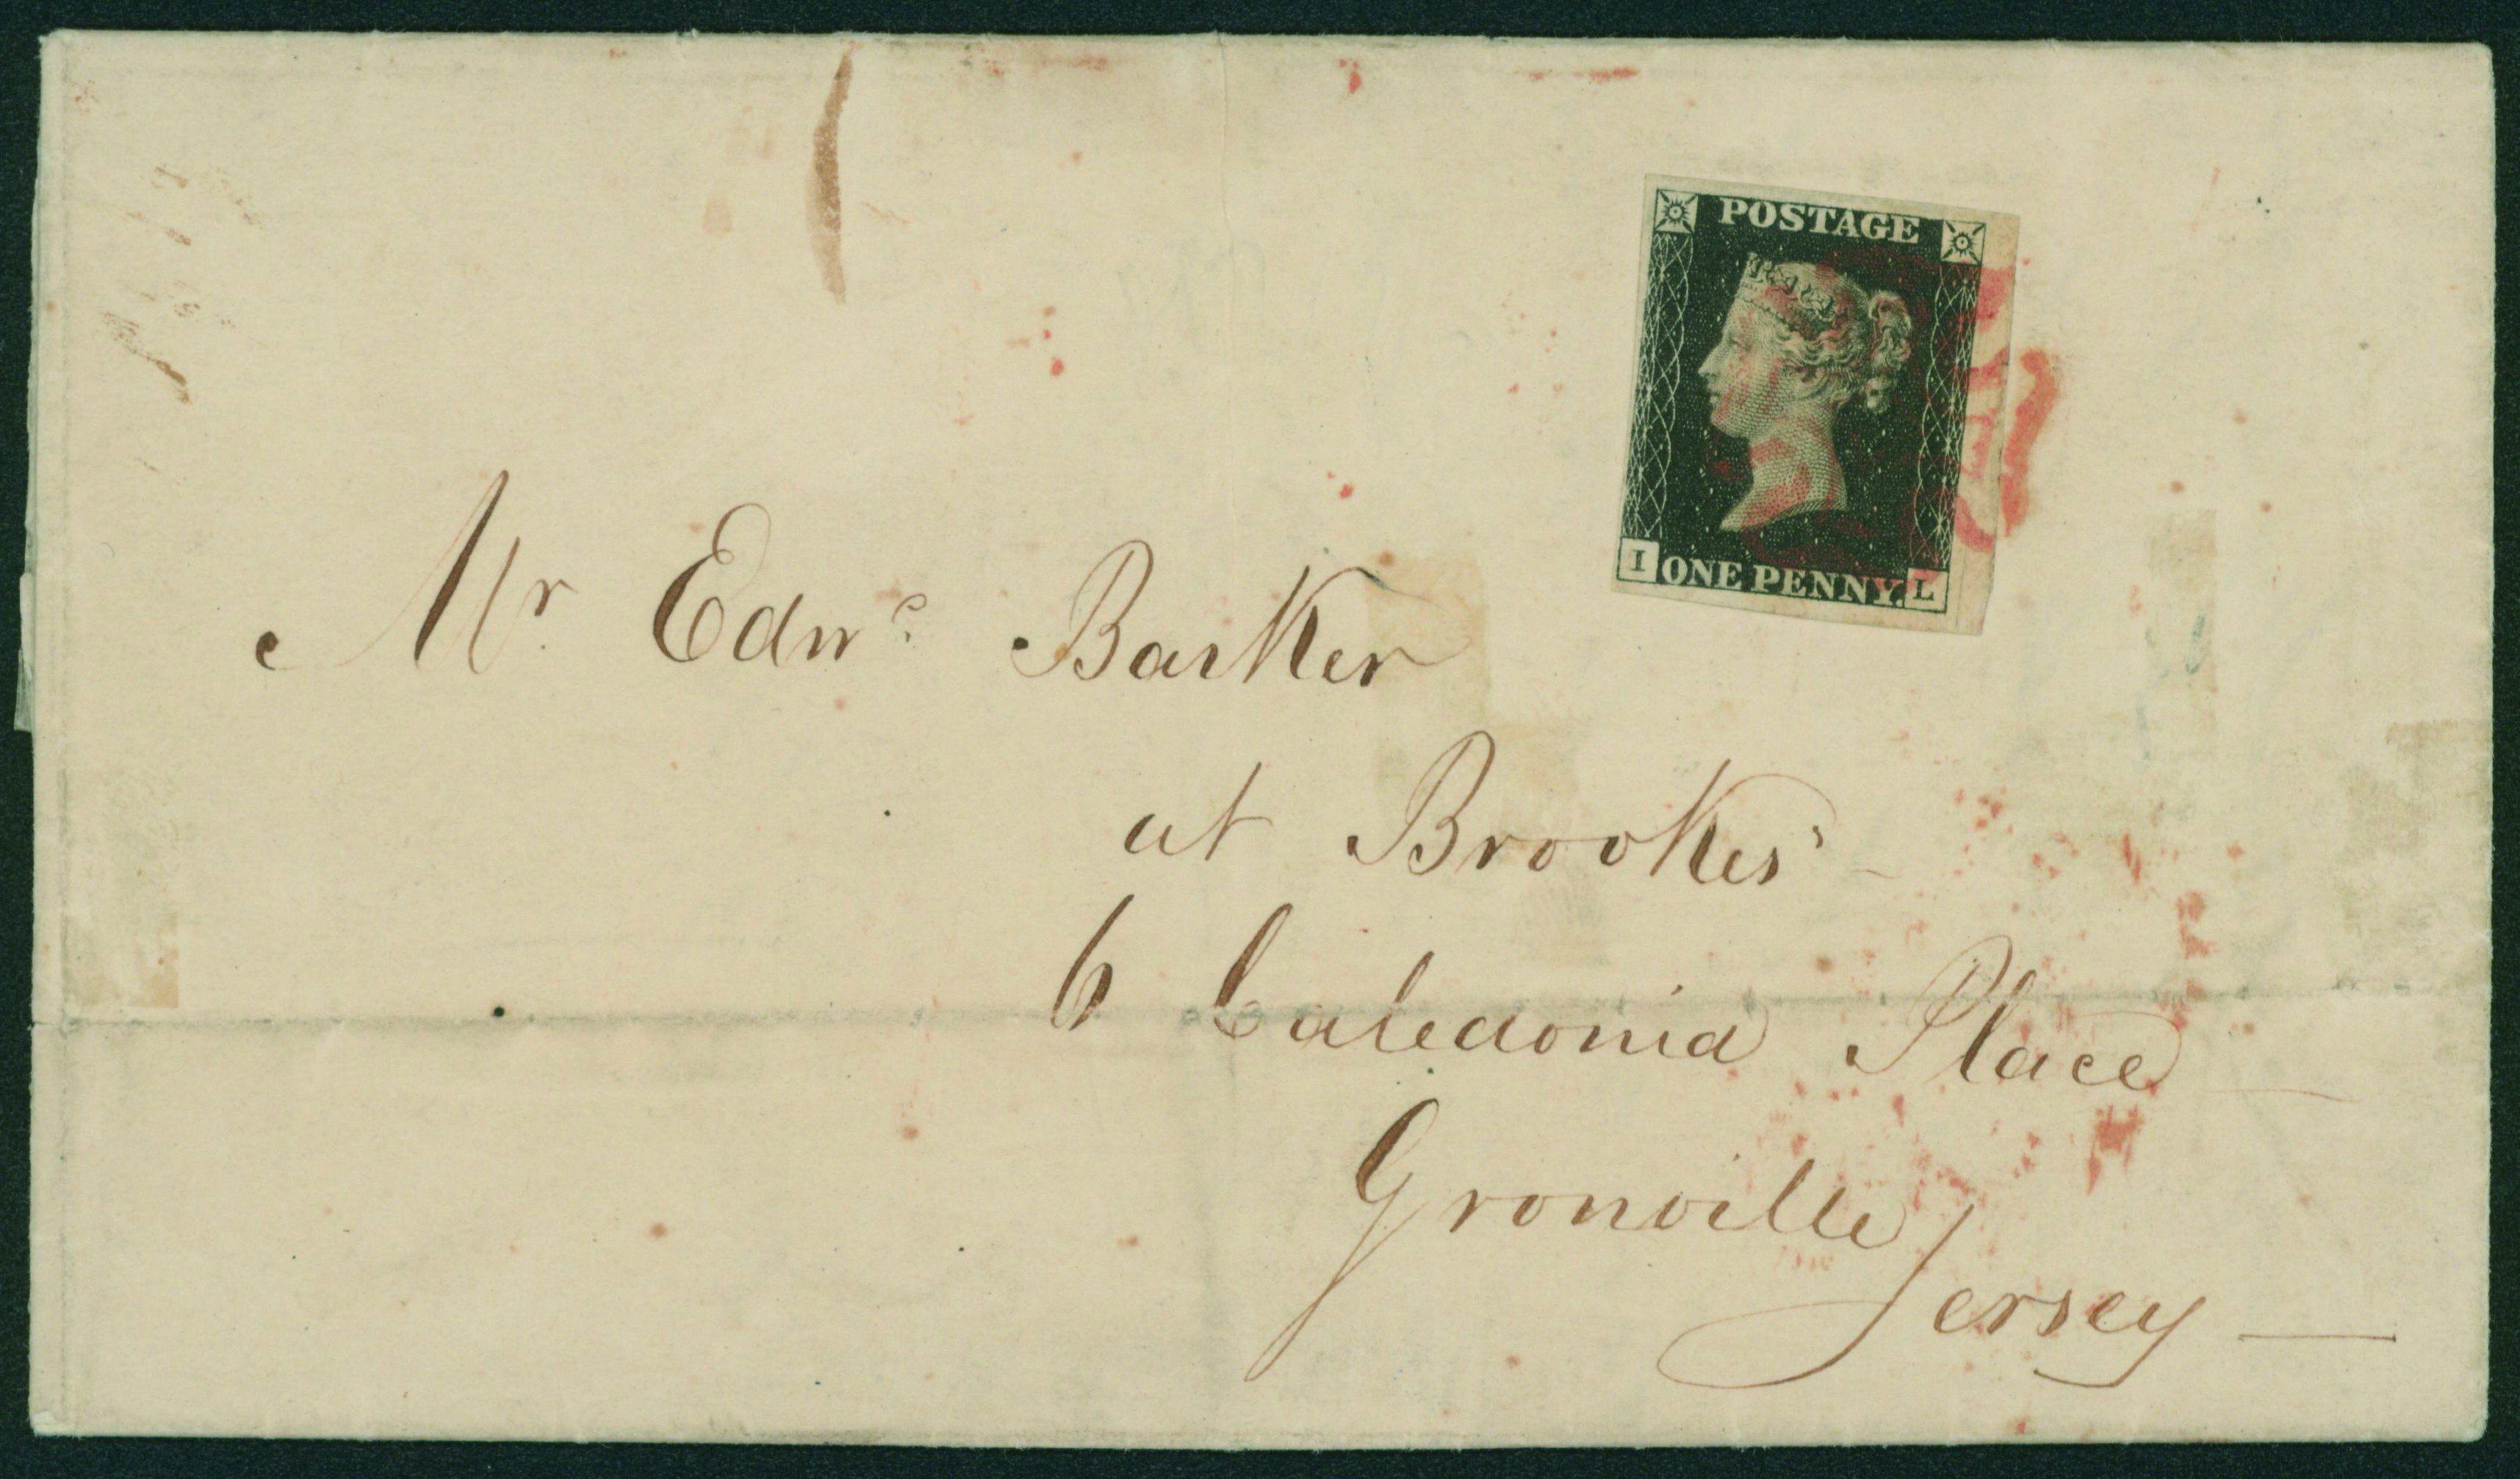 POSTAGE
I ONE PENNY. L
Mr Edwd Barker
at Brookes'
6 Caledonia Place
Gronville
Jersey